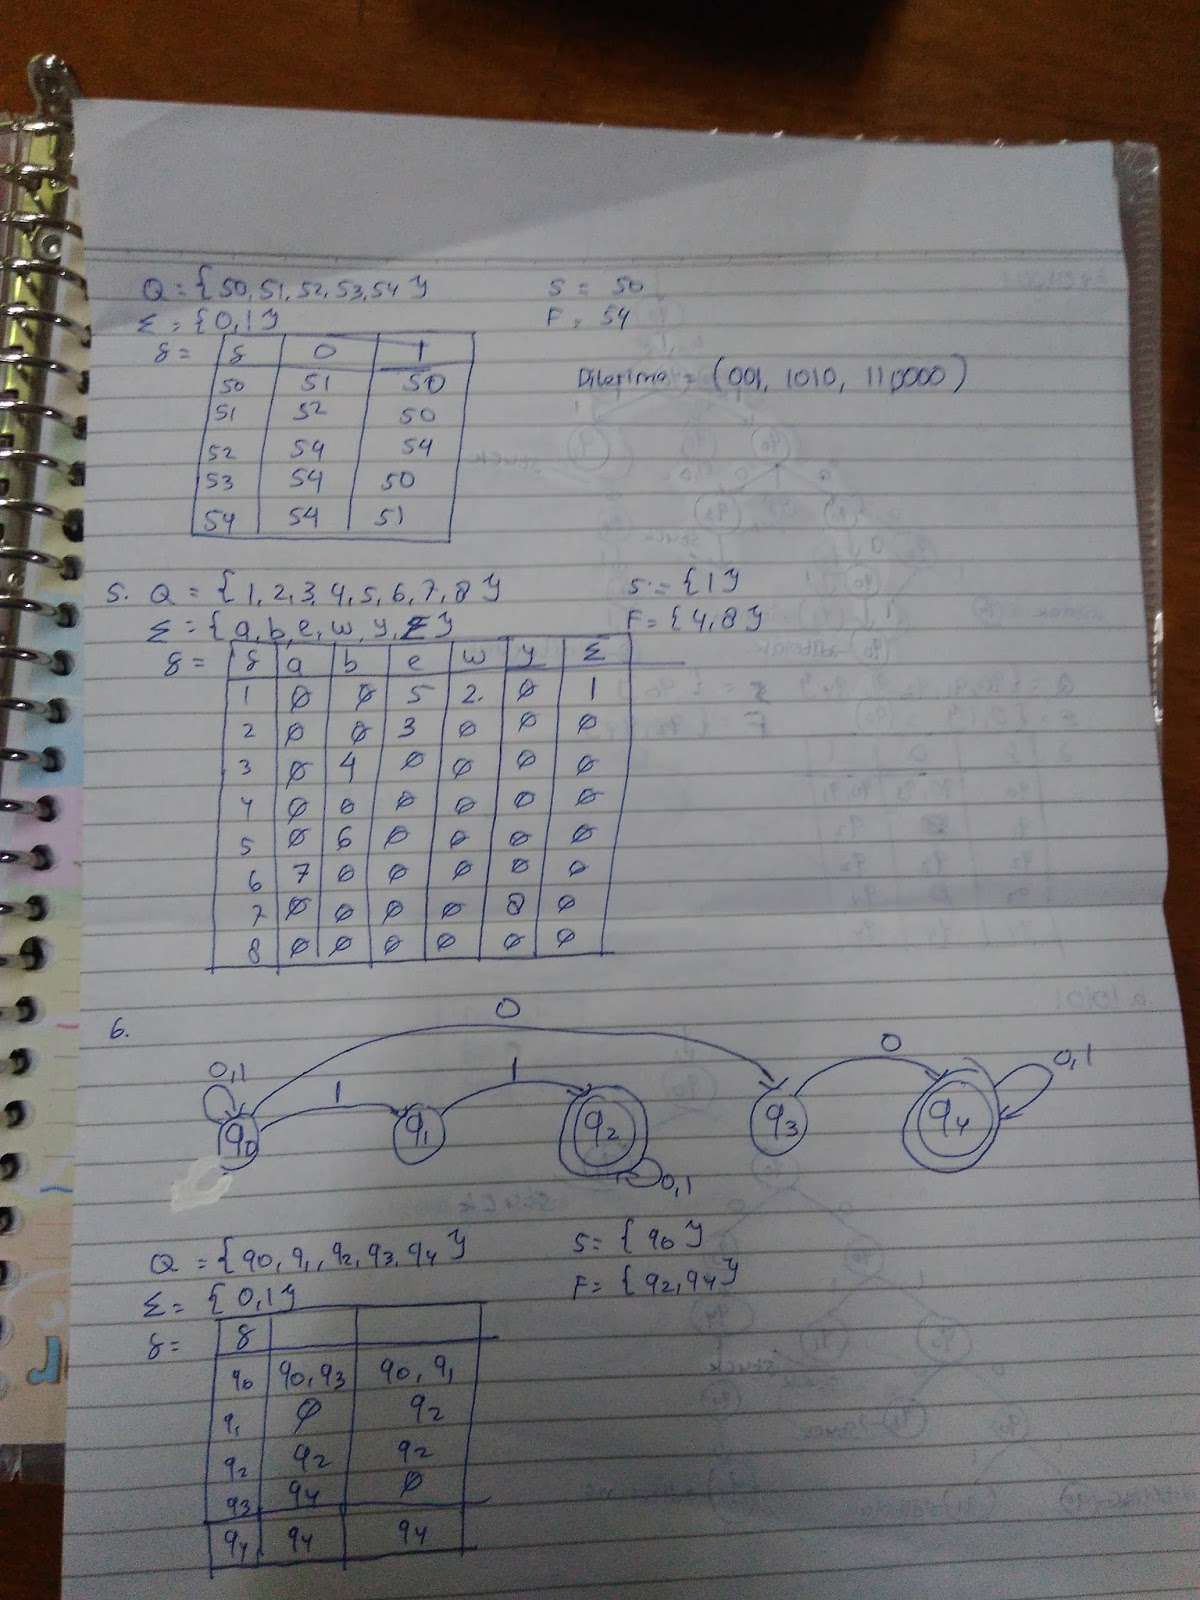 Q = {S0, S1, S2, S3, S4} S = S0
Σ = {0,1} F = S4
δ = δ 0 1
S0 S1 S0
S1 S2 S0
S2 S4 S4
S3 S4 S0
S4 S4 S1
Diterima = (001, 1010, 110000)
5. Q = {1, 2, 3, 4, 5, 6, 7, 8} S = {1}
Σ = {a, b, e, w, y, Σ} F = {4,8}
δ = δ a b e w y Σ
1 ∅ ∅ 5 2 ∅ 1
2 ∅ ∅ 3 ∅ ∅ ∅
3 ∅ 4 ∅ ∅ ∅ ∅
4 ∅ ∅ ∅ ∅ ∅ ∅
5 ∅ 6 ∅ ∅ ∅ ∅
6 7 ∅ ∅ ∅ ∅ ∅
7 ∅ ∅ ∅ ∅ 8 ∅
8 ∅ ∅ ∅ ∅ ∅ ∅
6.
0
0,1 1 1 0 0,1
q0 q1 q2 q3 q4
0,1
Q = {q0, q1, q2, q3, q4} S = {q0}
Σ = {0,1} F = {q2, q4}
δ = δ
q0 q0, q3 q0, q1
q1 ∅ q2
q2 q2 q2
q3 q4 ∅
q4 q4 q4